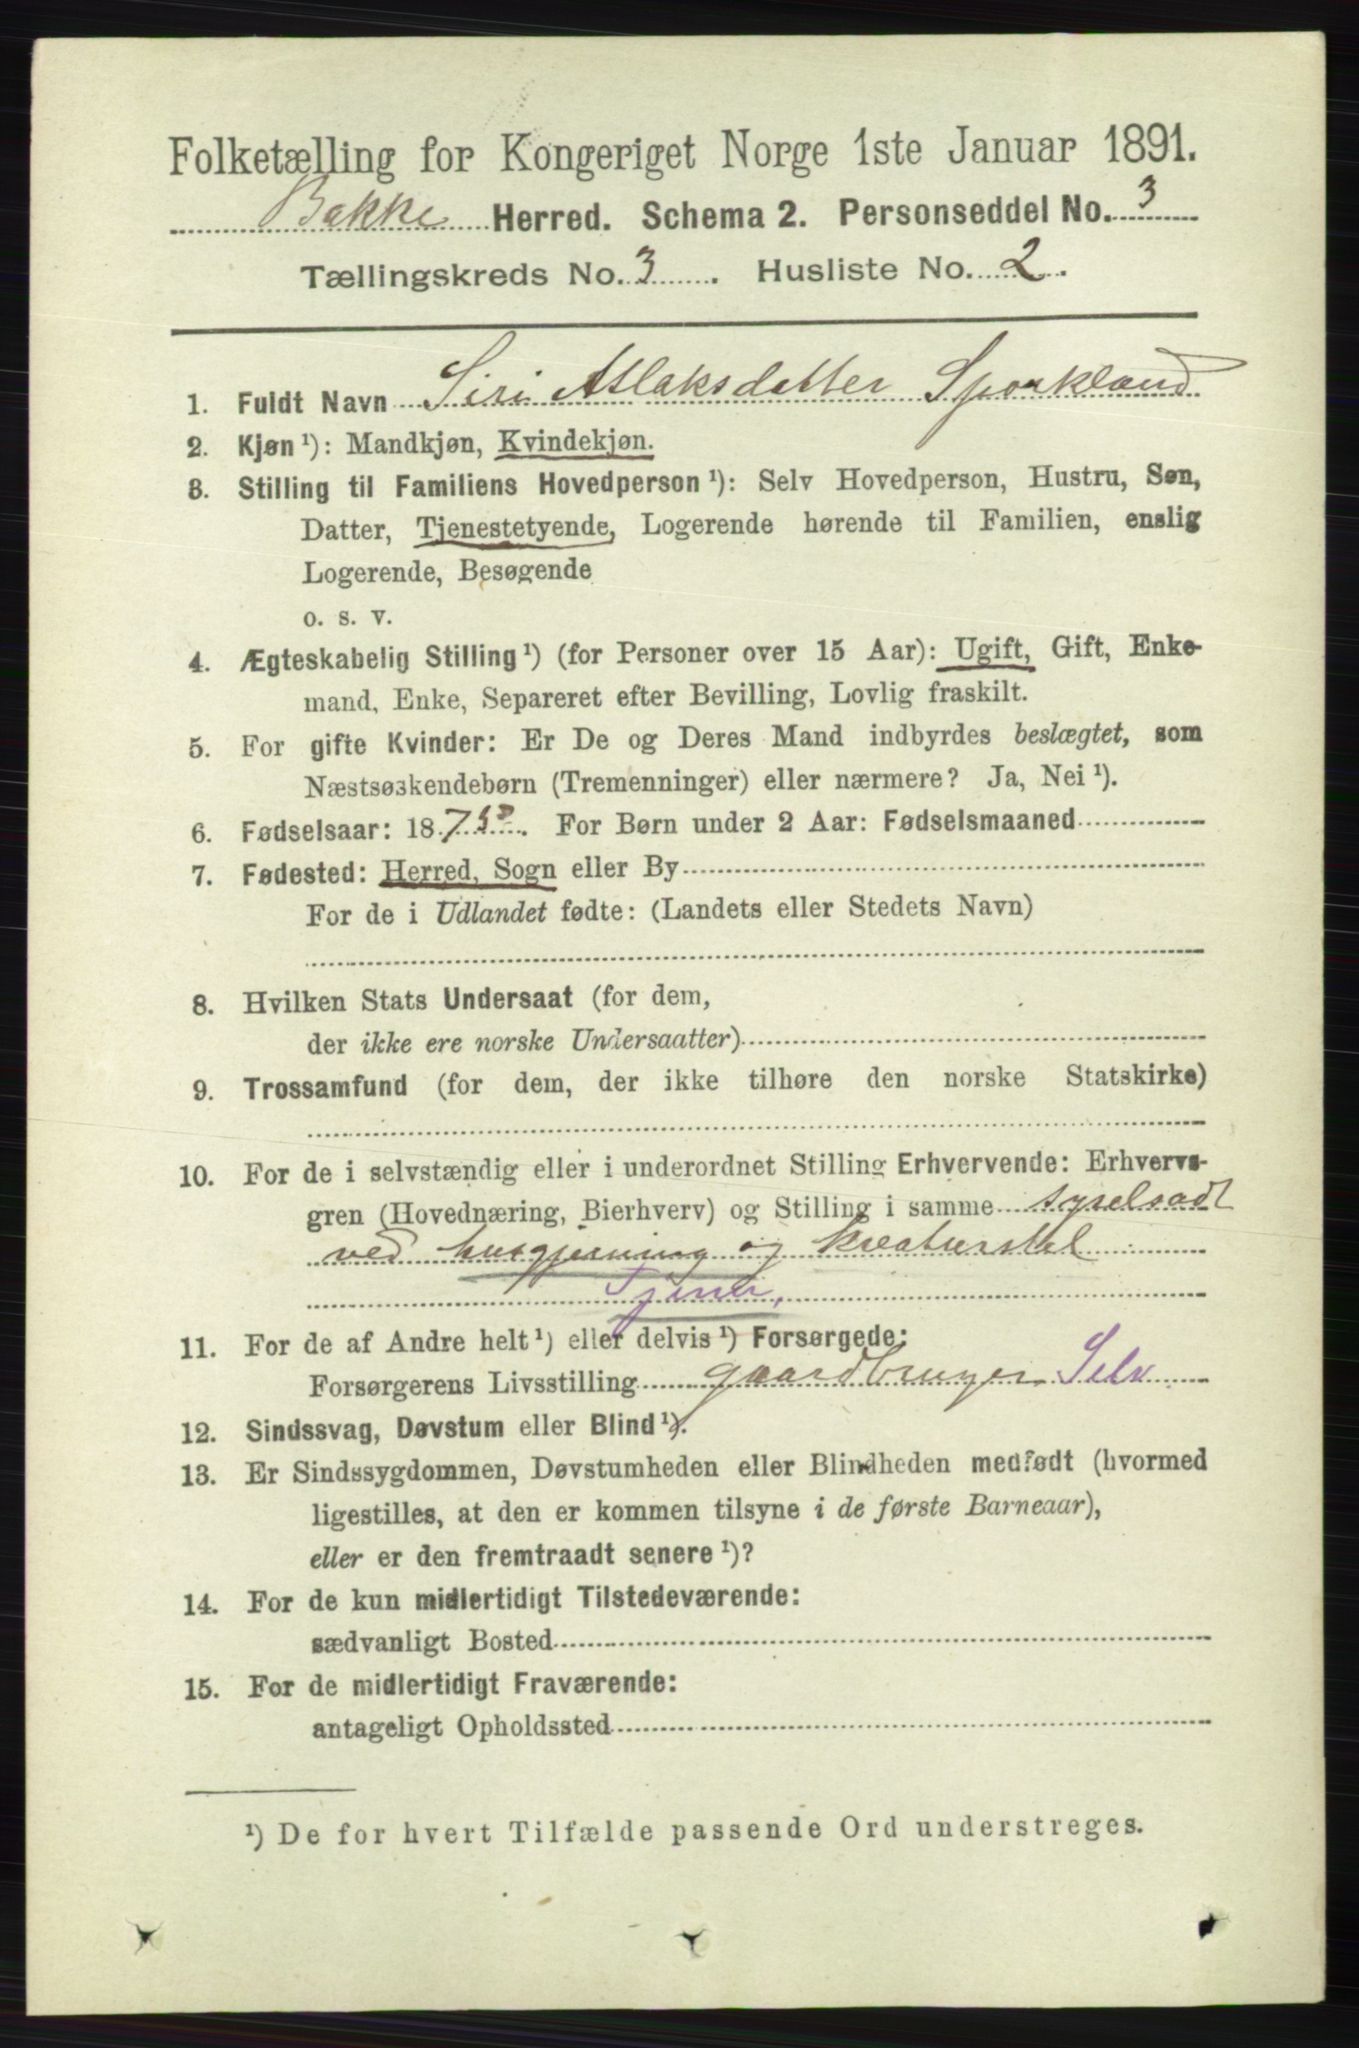 Folketælling for Kongeriget Norge 1ste Januar 1891.
Bakke Herred. Schema 2. Personseddel No. 3
Tællingskreds No. 3. Husliste No. 2.
1. Fuldt Navn Siri Atlaksdatter Sporkland
2. Kjøn ¹): Mandkjøn, Kvindekjøn.
3. Stilling til Familiens Hovedperson ¹): Selv Hovedperson, Hustru, Søn,
Datter, Tjenestetyende, Logerende hørende til Familien, enslig
Logerende, Besøgende
o. s. v.
4. Ægteskabelig Stilling ¹) (for Personer over 15 Aar): Ugift, Gift, Enke-
mand, Enke, Separeret efter Bevilling, Lovlig fraskilt.
5. For gifte Kvinder: Er De og Deres Mand indbyrdes beslægtet, som
Næstsøskendebørn (Tremenninger) eller nærmere? Ja, Nei ¹).
6. Fødselsaar: 187. For Børn under 2 Aar: Fødselsmaaned
7. Fødested: Herred, Sogn eller By
For de i Udlandet fødte: (Landets eller Stedets Navn)
8. Hvilken Stats Undersaat (for dem,
der ikke ere norske Undersaatter)
9. Trossamfund (for dem, der ikke tilhøre den norske Statskirke)
10. For de i selvstændig eller i underordnet Stilling Erhvervende: Erhvervs-
gren (Hovednæring, Bierhverv) og Stilling i samme syselsadt
ved husgjerning og kreaturstel
Tjener,
11. For de af Andre helt ¹) eller delvis ¹) Forsørgede:
Forsørgerens Livsstilling gaardbruger Selv
12. Sindssvag, Døvstum eller Blind ¹).
13. Er Sindssygdommen, Døvstumheden eller Blindheden medfødt (hvormed
ligestilles, at den er kommen tilsyne i de første Barneaar),
eller er den fremtraadt senere ¹)?
14. For de kun midlertidigt Tilstedeværende:
sædvanligt Bosted
15. For de midlertidigt Fraværende:
antageligt Opholdssted
¹) De for hvert Tilfælde passende Ord understreges.